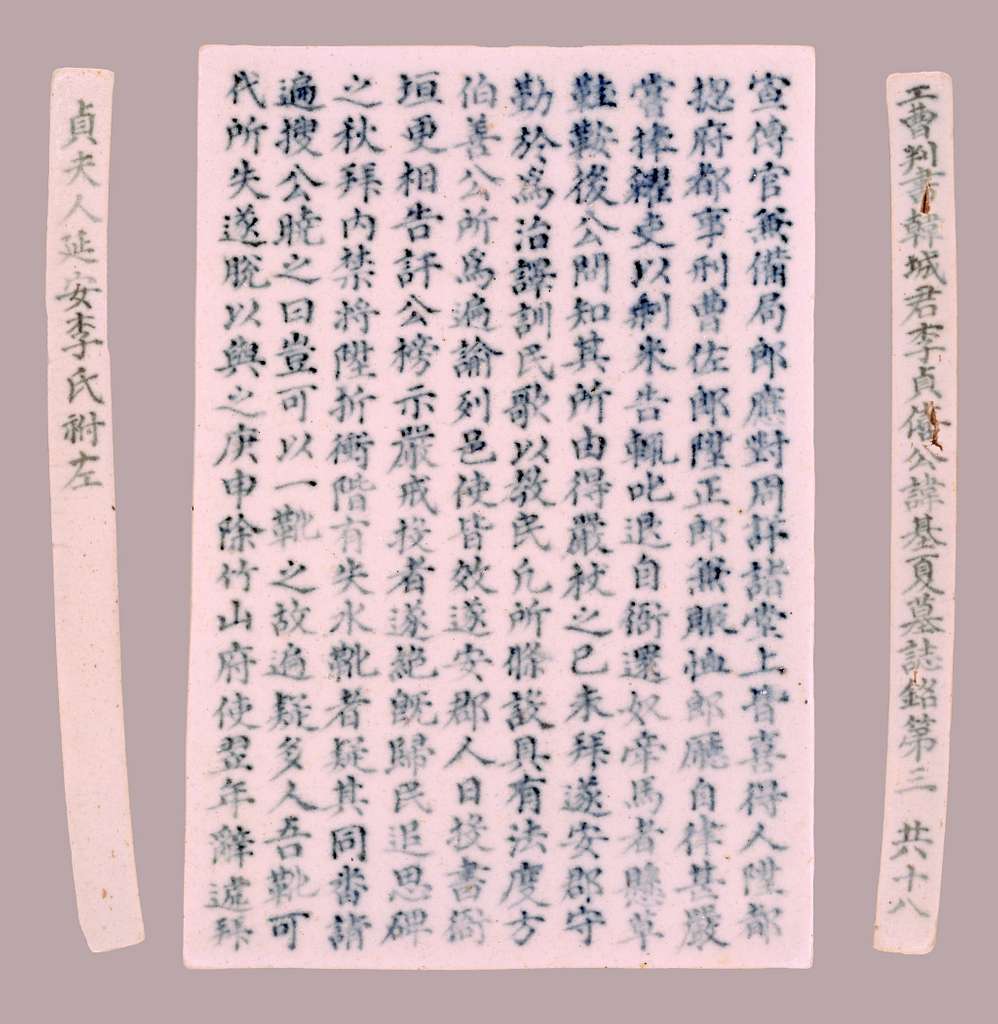 工曹判書韓城君李貞僖公諱基夏墓誌銘第三 共十八
宣傳官兼備局郎應對周詳諸堂上皆喜得人陞都
摠府都事刑曹佐郎陞正郎兼賑恤郎廳自律甚嚴
嘗捧糶吏以剩米告輒叱退自衙還奴牽馬者懸草
鞋鞍後公問知其所由得嚴杖之已未拜遂安郡守
勤於爲治譯訓民歌以敎民凡所條設具有法度方
伯善公所爲遍諭列邑使皆效遂安郡人日投書衙
垣更相告訐公榜示嚴戒投者遂絶旣歸民追思碑
之秋拜内禁將陞折衝階有失氷靴者疑其同番請
遍搜公曉之曰豈可以一靴之故遍疑多人吾靴可
代所失遂脫以與之庚申除竹山府使翌年辭遞拜
貞夫人延安李氏祔左